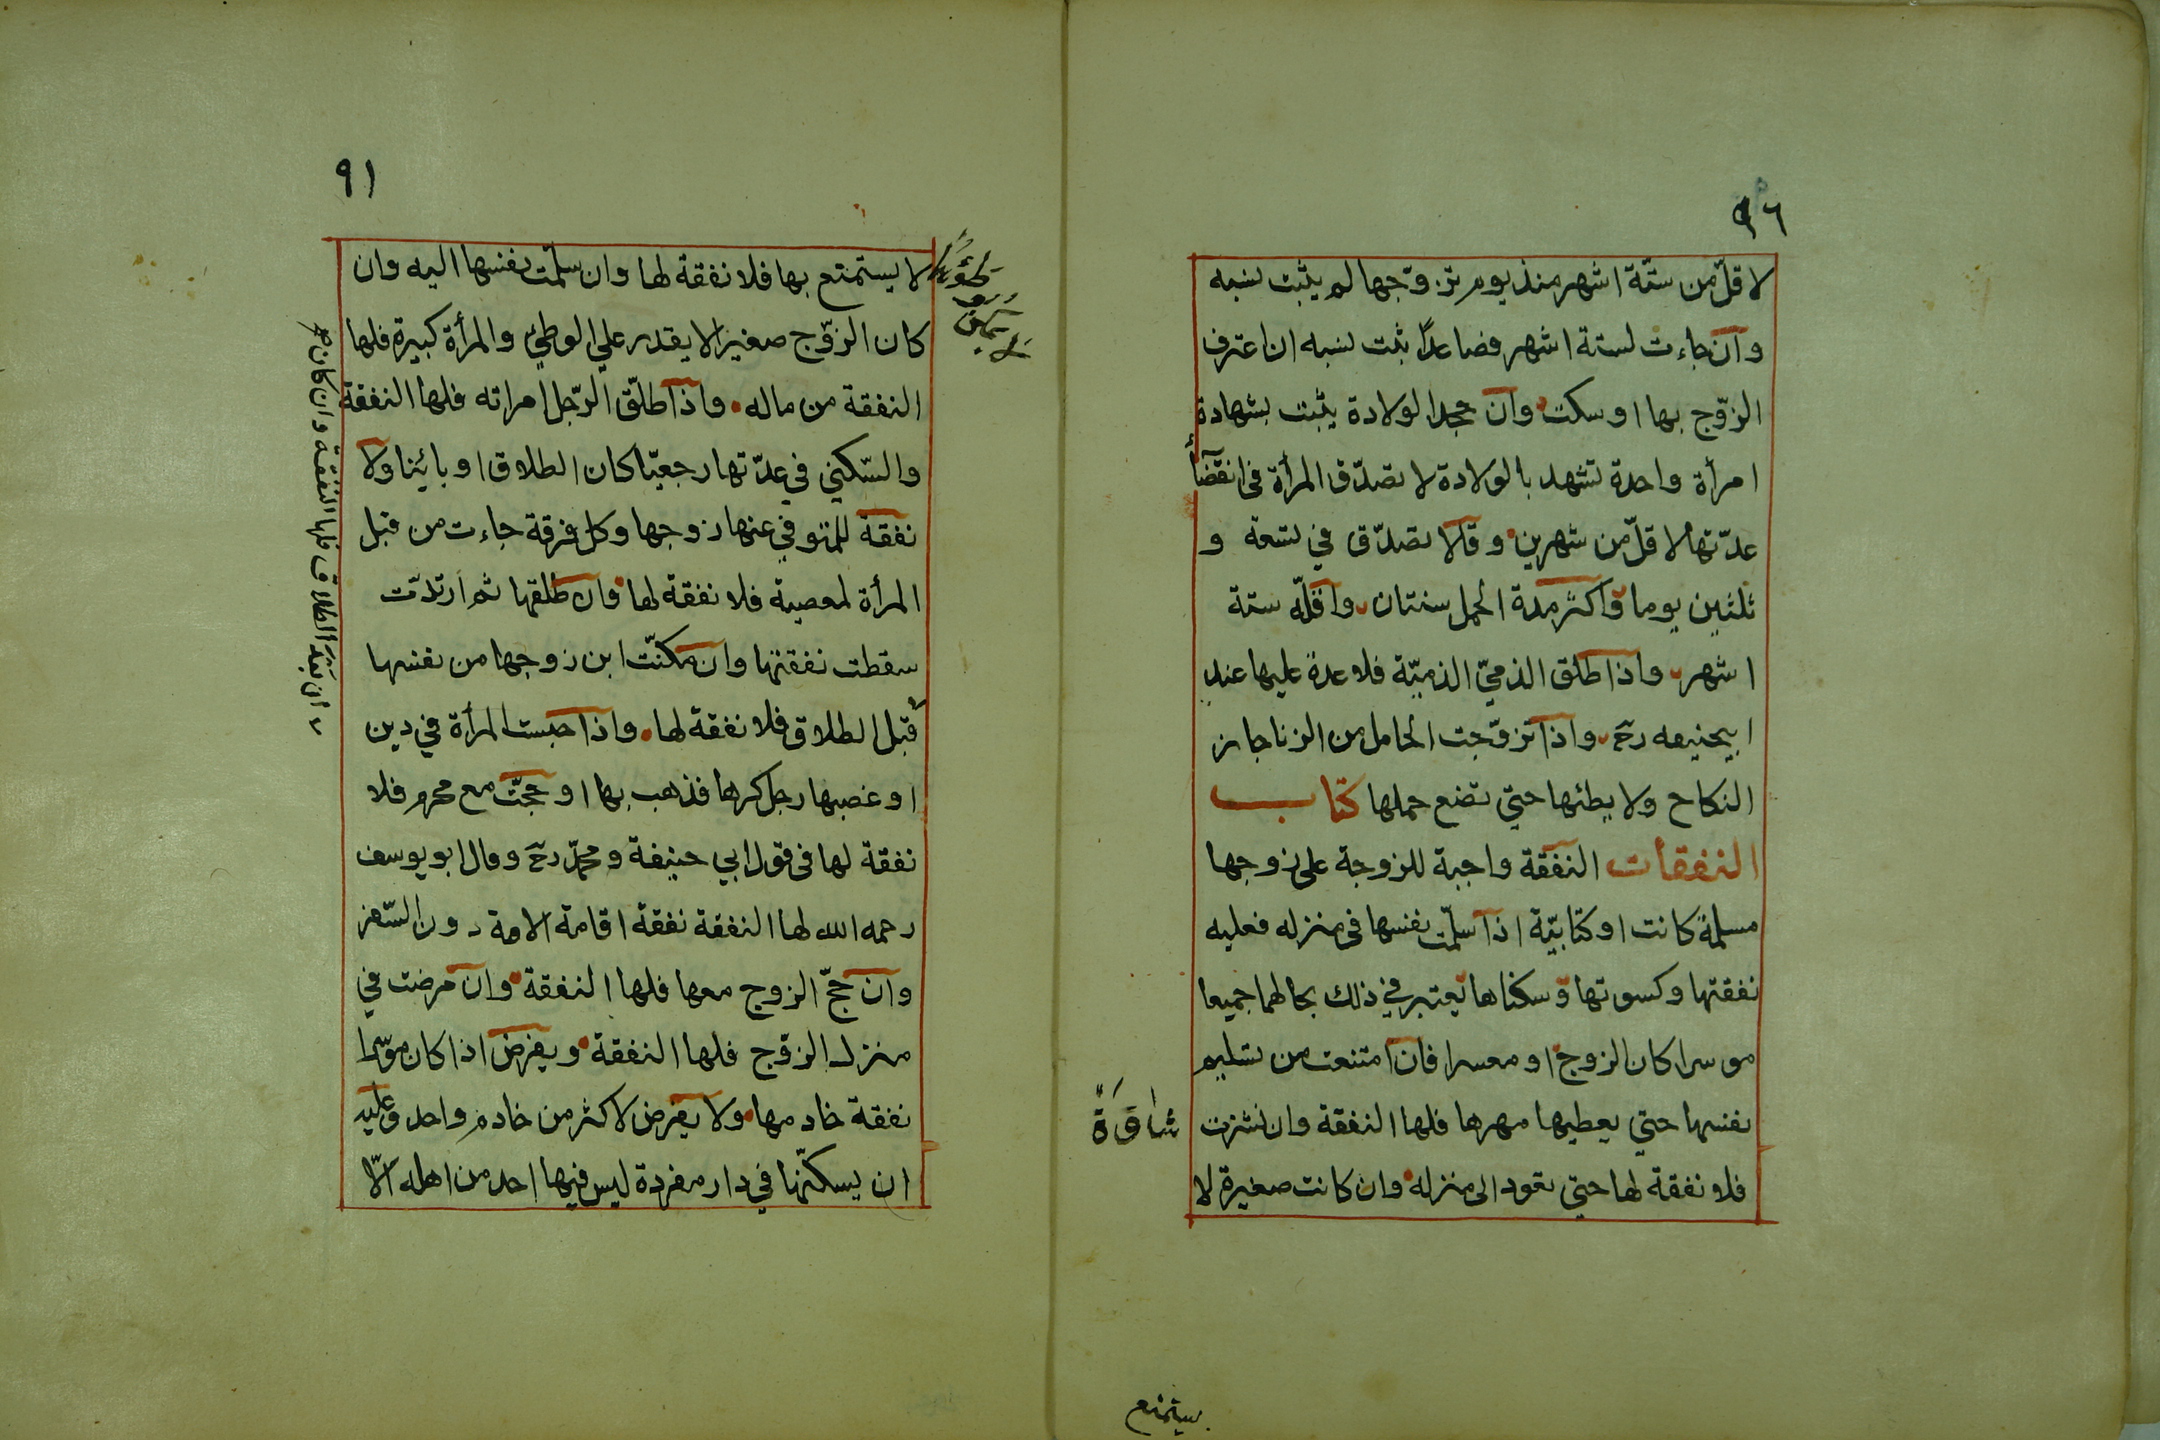 ٩٦
لاقلّ من ستّة اشهر منذ يوم تزوّجها لم يثبت نسبه
وان جاءت لستة اشهر فصاعدًا ثبت نسبه ان اعترف
الزوّج بها او سكت وان جحد الولادة يثبت بشهادة
امرأة واحدة تشهد بالولادة لا تصدّق المرأة فى انقضآء
عدّتها لاقلّ من شهرين وقالا تصدّق في تسعة و
ثلثين يوما واكثر مدة الحمل سنتان واقلّه ستة
اشهر واذا طلق الذميّ الذميّة فلا عدة عليها عند
ابيحنيفه رح واذا تزوّجت الحامل من الزنا جاز
النكاح ولا يطئها حتي تضع حملها كتاب
النفقات النفقة واجبة للزوجة علي زوجها
مسلمة كانت او كتابيّة اذا سلّمت نفسها فى منزله فعليه
نفقتها وكسوتها وسكناها يعتبر في ذلك بحالهما جميعا
موسرا كان الزوج او معسرا فان امتنعت من تسليم
نفسها حتي يعطيها مهرها فلها النفقة وان نشزت
شاقة
فلا نفقة لها حتي تعود الى منزله وان كانت صغيرة لا
يستمتع
٩١
لا يستمتع بها فلا نفقة لها وان سلّمت نفسها اليه وان
كان الزوّج صغيرا لا يقدر علي الوطئ والمرأة كبيرة فلها
النفقة من ماله واذا طلّق الرّجل امراته فلها النفقة
والسّكني في عدّتها رجعيّا كان الطلاق او بائنا ولا
نفقة للمتوفي عنها زوجها وكل فرقة جاءت من قبل
المرأة لمعصية فلا نفقة لها وان طلقها ثم ارتدّت
سقطت نفقتها وان مكنّت ابن زوجها من نفسها
قبل الطلاق فلا نفقة لها واذا حبست المرأة في دين
او غصبها رجل كرها فذهب بها او حجّت مع محرم فلا
نفقة لها فى قول ابي حنيفة ومحمّد رح وقال ابو يوسف
رحمه الله لها النفقة نفقة اقامة الامة دون السّفر
وان حجّ الزوج معها فلها النفقة وان مرضت في
منزل الزوّج فلها النفقة ويفرض اذا كان موسرا
نفقة خادمها ولا يفرض لاكثر من خادم واحد وعليه
ان يسكنّها في دار مفردة ليس فيها احد من اهله الّا
ان بعد الطلاق فلها النفقة وان كان